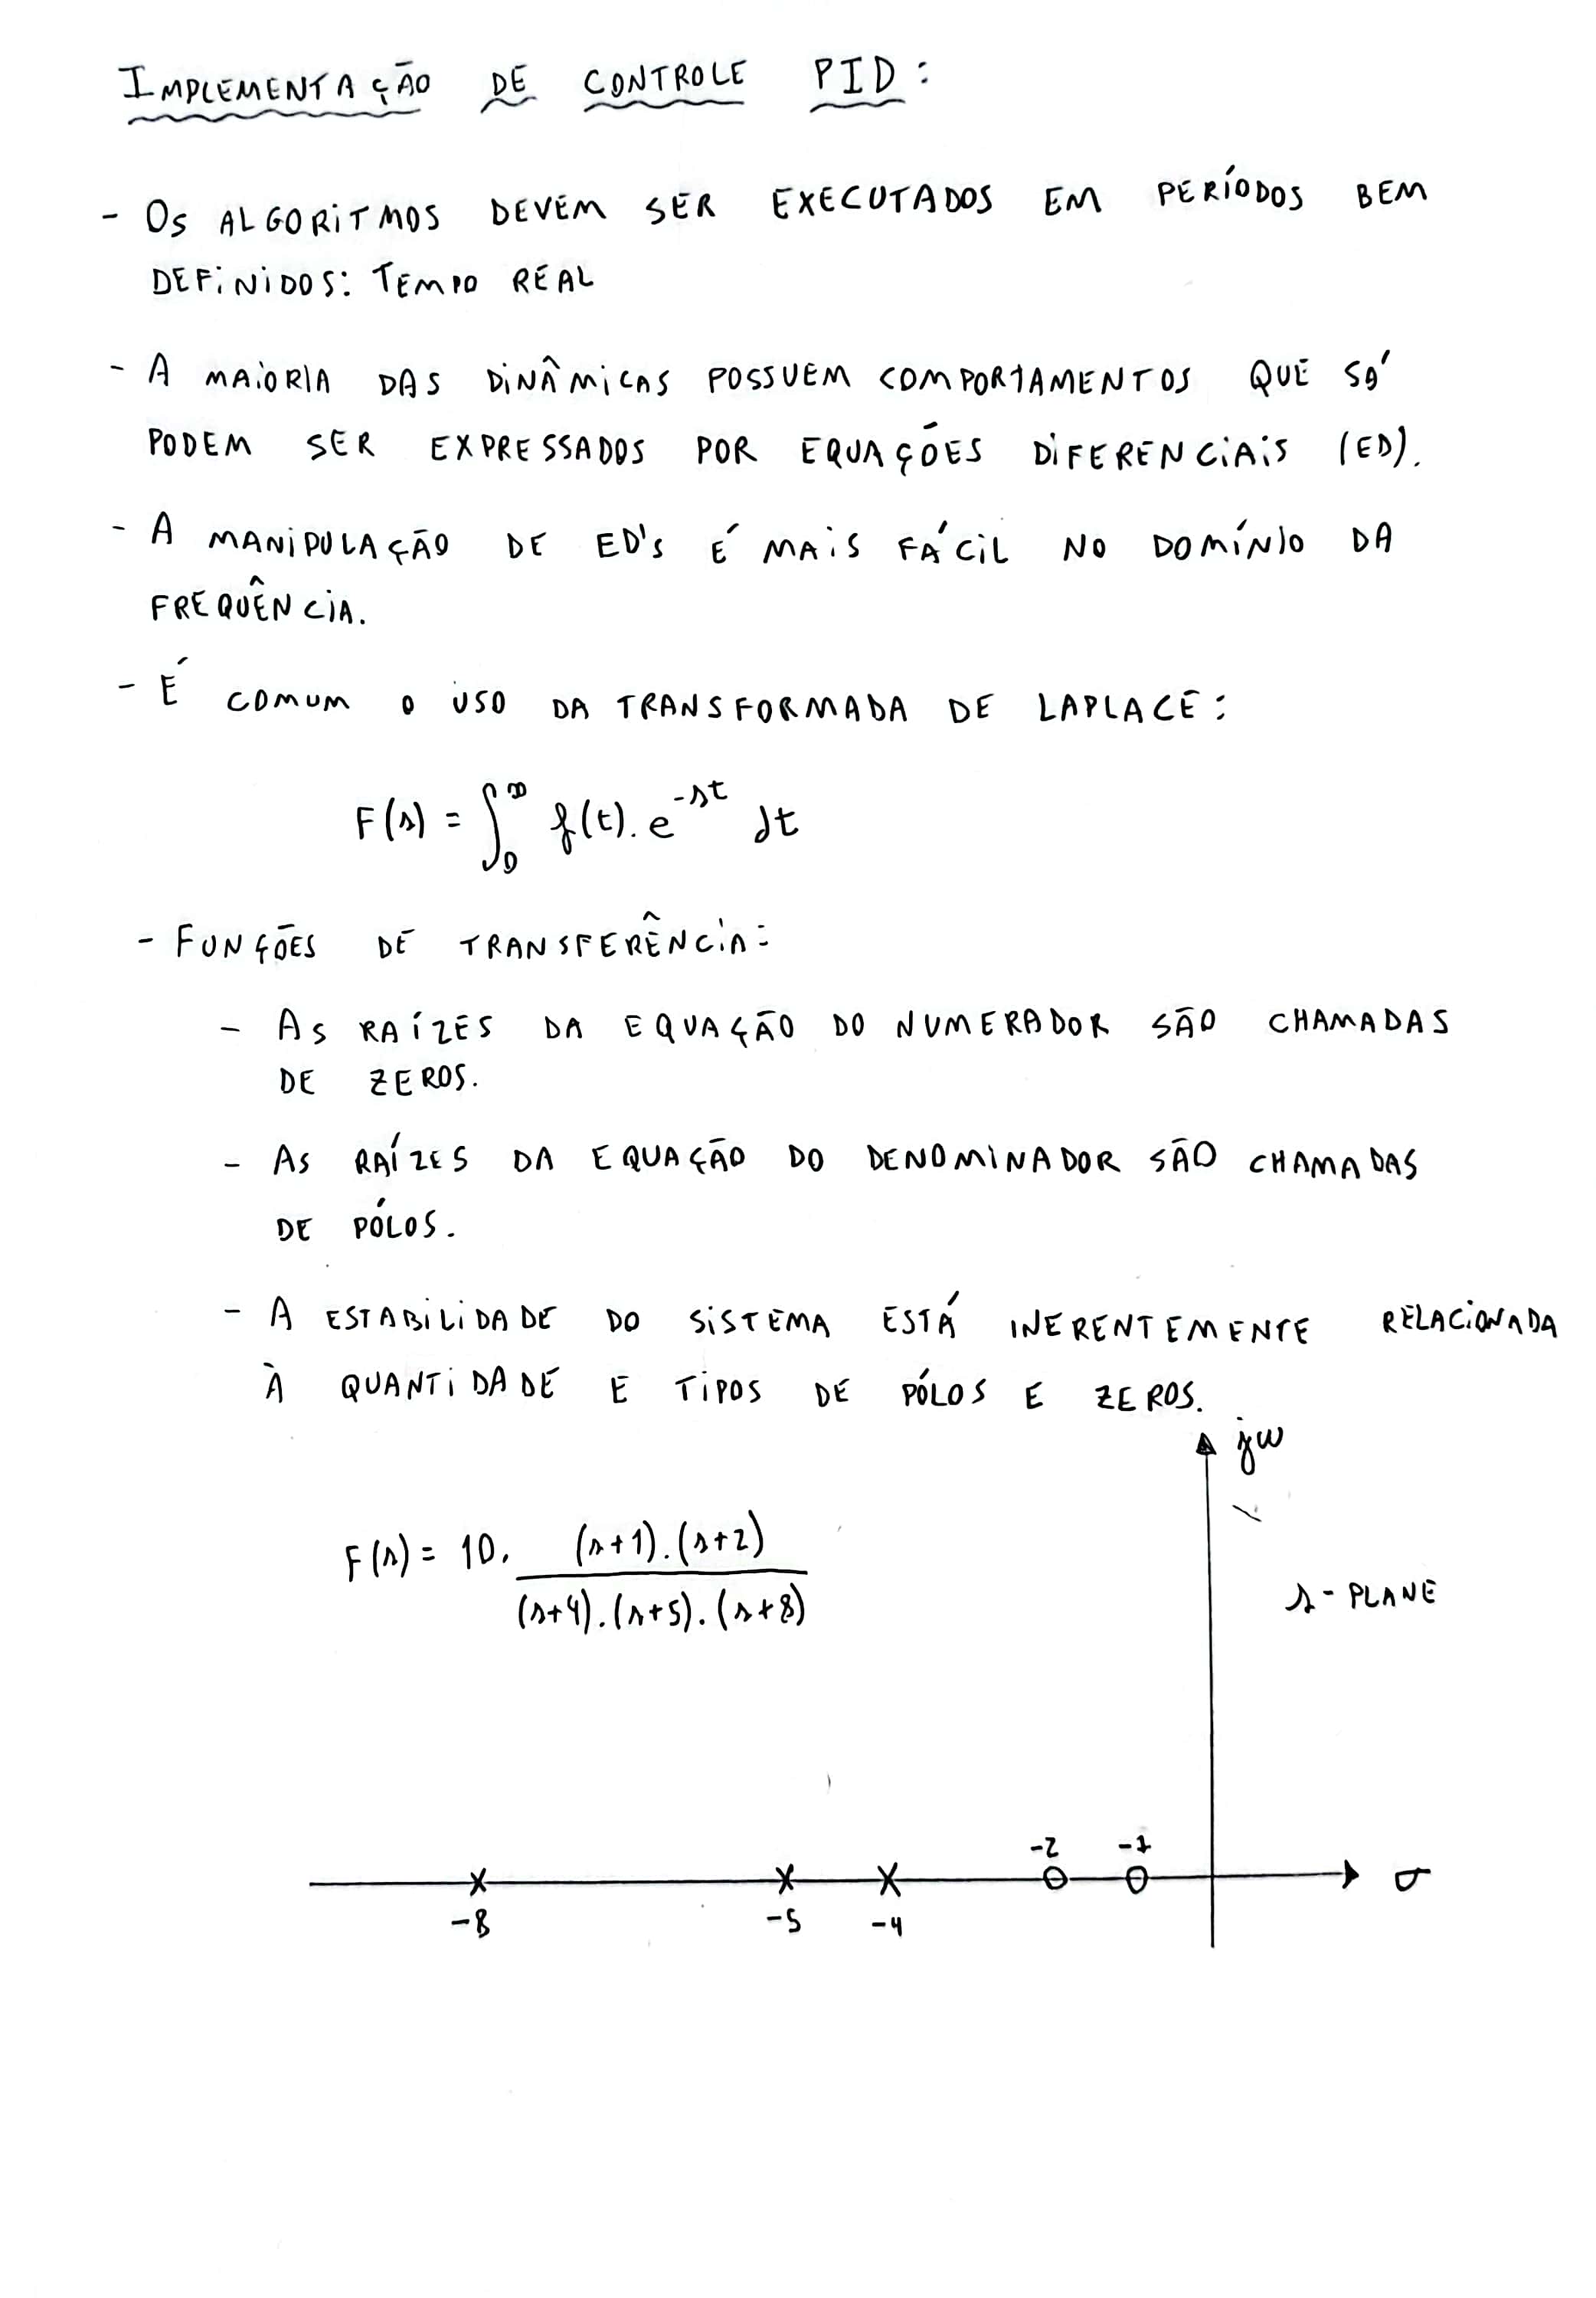 IMPLEMENTAÇÃO DE CONTROLE PID:
- OS ALGORITMOS DEVEM SER EXECUTADOS EM PERÍODOS BEM
DEFINIDOS: TEMPO REAL
- A MAIORIA DAS DINÂMICAS POSSUEM COMPORTAMENTOS QUE SÓ
PODEM SER EXPRESSADOS POR EQUAÇÕES DIFERENCIAIS (ED).
- A MANIPULAÇÃO DE ED'S É MAIS FÁCIL NO DOMÍNIO DA
FREQUÊNCIA.
- É COMUM O USO DA TRANSFORMADA DE LAPLACE:
F(s) = ∫₀^∞ f(t). e^-st dt
- FUNÇÕES DE TRANSFERÊNCIA:
- AS RAÍZES DA EQUAÇÃO DO NUMERADOR SÃO CHAMADAS
DE ZEROS.
- AS RAÍZES DA EQUAÇÃO DO DENOMINADOR SÃO CHAMADAS
DE PÓLOS.
- A ESTABILIDADE DO SISTEMA ESTÁ INERENTEMENTE RELACIONADA
À QUANTIDADE E TIPOS DE PÓLOS E ZEROS.
jω
F(s) = 10. (s+1).(s+2)
(s+4).(s+5).(s+8)
s-PLANE
-2 -1
σ
-8 -5 -4